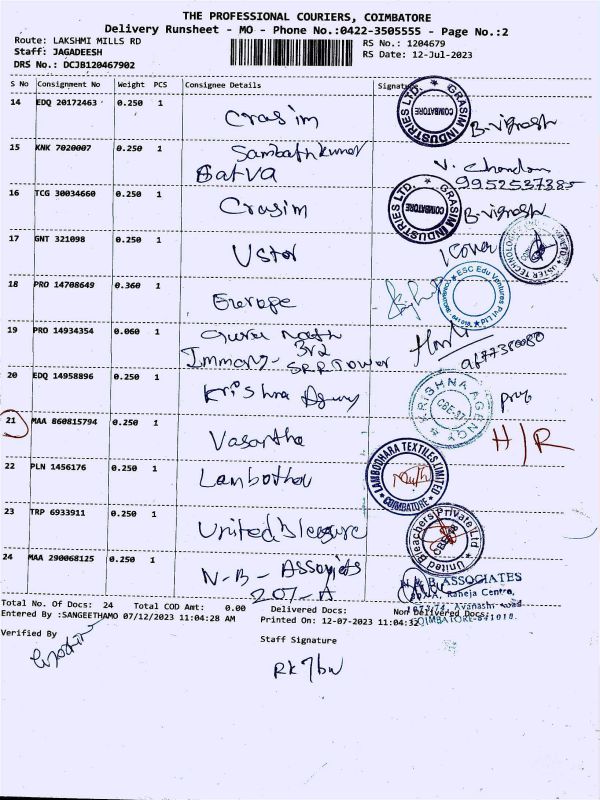 THE PROFESSIONAL COURIERS, COIMBATORE
Delivery Runsheet - MO - Phone No.:0422-3505555 - Page No.:2
Route: LAKSHMI MILLS RD RS No.: 1204679
Staff: JAGADEESH RS Date: 12-Jul-2023
DRS No.: DCJB120467902
S No Consignment No Weight PCS Consignee Details Signature
14 EDQ 20172463 0.250 1 Crasim GRASIM INDUSTRIES LTD. COIMBATORE B-vignesh
15 KNK 7020007 0.250 1 Sambathkumar
Satva V. Chandan
16 TCG 30034660 0.250 1 Crasim GRASIM INDUSTRIES LTD. COIMBATORE B-vignesh
17 GNT 321098 0.250 1 Uster USTER TECHNOLOGIES
18 PRO 14708649 0.360 1 ESC Edu Ventures Pvt Ltd
19 PRO 14934354 0.060 1 Guru nath
3rd
SRR Tower
20 EDQ 14958896 0.250 1 Krishna Agency KRISHNA AGENCY CBE-37
21 MAA 860815794 0.250 1 Vasantha H/R
22 PLN 1456176 0.250 1 LAMBODHARA TEXTILES LIMITED COIMBATORE
23 TRP 6933911 0.250 1 United United Bleachers Private Ltd
24 MAA 290068125 0.250 1 N-B- Associats
207-A N.B. ASSOCIATES
Raheja Centre,
Avanashi Road
COIMBATORE-641018.
Total No. Of Docs: 24 Total COD Amt: 0.00 Delivered Docs: Non Delivered Docs:
Entered By :SANGEETHAMO 07/12/2023 11:04:28 AM Printed On: 12-07-2023 11:04:32
Verified By Staff Signature